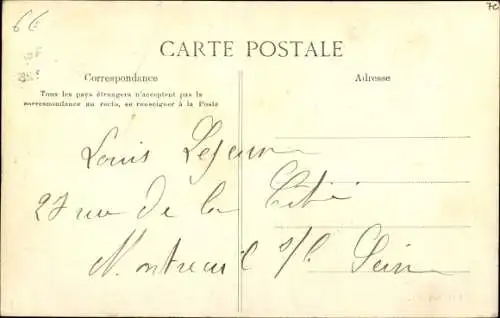 CARTE POSTALE
Correspondance
Adresse
Tous les pays étrangers n'acceptent pas la
correspondance au recto, se renseigner à la Poste
Louis Lejeune
27 rue de la Cité
Montreuil s/s Seine